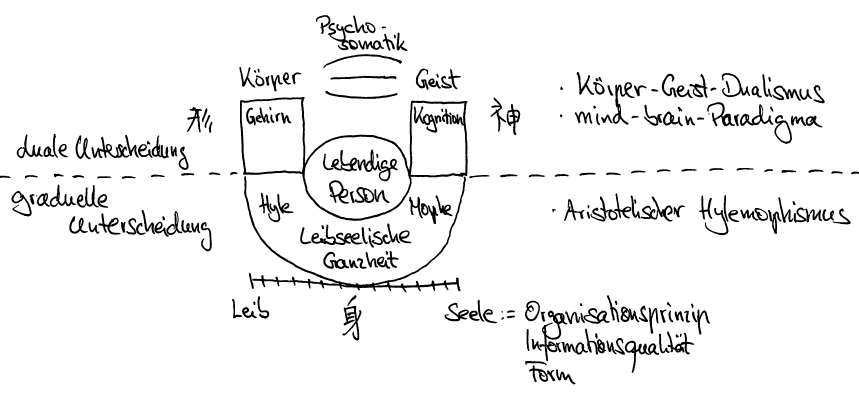 Psycho-
somatik
Körper
Geist
· Körper-Geist-Dualismus
形
Gehirn
Kognition
神
· mind-brain-Paradigma
duale Unterscheidung
Lebendige
Person
graduelle
Unterscheidung
Hyle
Morphe
· Aristotelischer Hylemorphismus
Leibseelische
Ganzheit
Leib
身
Seele := Organisationsprinzip
Informationsqualität
Form